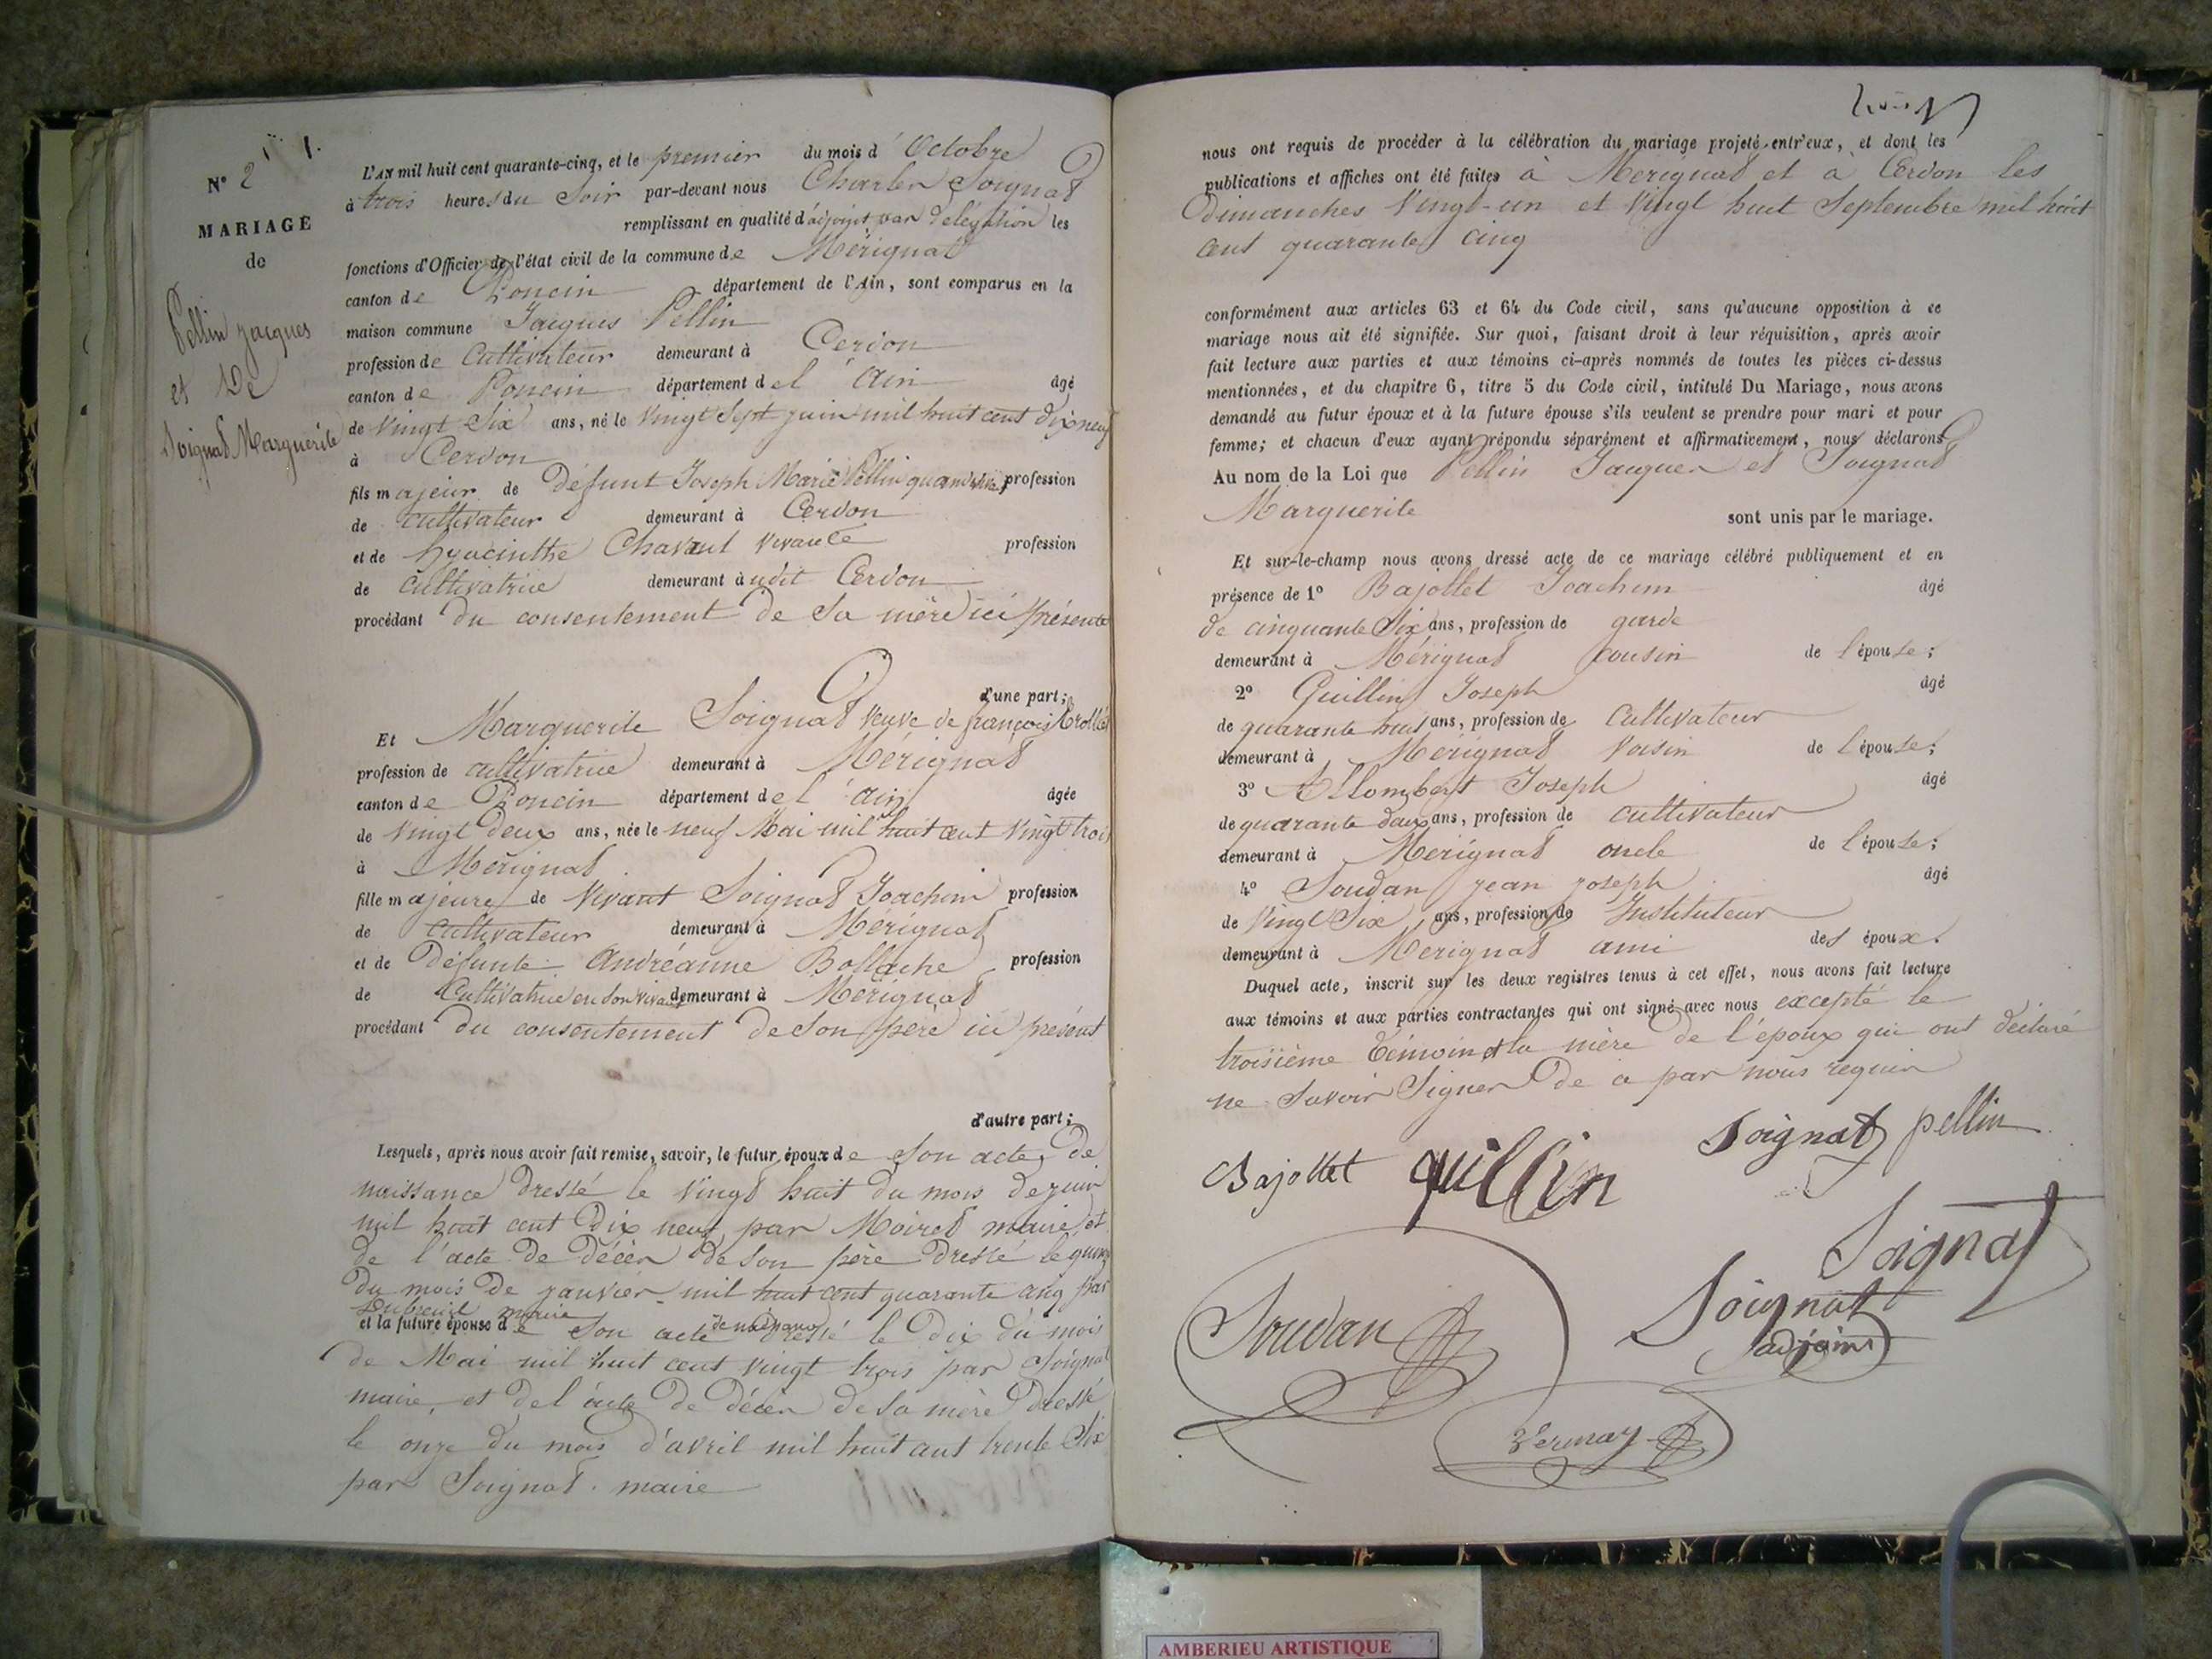 N° 2
MARIAGE
de
Pellin Jacques
et De
Soignat Marguerite
L'AN mil huit cent quarante-cinq, et le premier du mois d'Octobre
à trois heures du Soir par-devant nous Charles Soignat
remplissant en qualité d'adjoint par délégation les
fonctions d'Officier de l'état civil de la commune de Mérignat
canton de Poncin département de l'Ain, sont comparus en la
maison commune Jacques Pellin
profession de Cultivateur demeurant à Cerdon
canton de Poncin département de l'Ain âgé
de Vingt Six ans, né le Vingt Sept juin mil huit cent dix neuf
à Cerdon
fils majeur de Défunt Joseph Marie Pellin quand vivait profession
de Cultivateur demeurant à Cerdon
et de hyacinthe Chavant vivante profession
de Cultivatrice demeurant à udit Cerdon
procédant du consentement de Sa mère ici présente
d'une part;
Et Marguerite Soignat Veuve de françois
profession de cultivatrice demeurant à Mérignat
canton de Poncin département de l'Ain âgée
de Vingt deux ans, née le neuf Mai mil huit cent Vingt trois
à Mérignat
fille majeure de Vivant Soignat Joachim profession
de Cultivateur demeurant à Mérignat
et de Défunte Andréanne Bollache profession
de Cultivatrice en son vivant demeurant à Mérignat
procédant du consentement de Son père ici présent
d'autre part;
Lesquels, après nous avoir fait remise, savoir, le futur époux de Son acte de
naissance dressé le Vingt huit du mois de juin
mil huit cent dix neuf par Moiret maire et
de l'acte de Décès de Son père dressé le quinze
du mois de janvier mil huit cent quarante cinq par
Dubreuil maire
et la future épouse de Son acte de naissance dressé le Dix du mois
de Mai mil huit cent vingt trois par Soignat
maire, et de l'acte de Décès de Sa mère Dressé
le onze du mois d'avril mil huit cent trente Six
par Soignat maire
nous ont requis de procéder à la célébration du mariage projeté entr'eux, et dont les
publications et affiches ont été faites à Mérignat et à Cerdon les
Dimanches Vingt-un et Vingt huit Septembre mil huit
cent quarante cinq
conformément aux articles 63 et 64 du Code civil, sans qu'aucune opposition à ce
mariage nous ait été signifiée. Sur quoi, faisant droit à leur réquisition, après avoir
fait lecture aux parties et aux témoins ci-après nommés de toutes les pièces ci-dessus
mentionnées, et du chapitre 6, titre 5 du Code civil, intitulé Du Mariage, nous avons
demandé au futur époux et à la future épouse s'ils veulent se prendre pour mari et pour
femme; et chacun d'eux ayant répondu séparément et affirmativement, nous déclarons
Au nom de la Loi que Pellin Jacques et Soignat
Marguerite sont unis par le mariage.
Et sur-le-champ nous avons dressé acte de ce mariage célébré publiquement et en
présence de 1° Bajollet Joachim âgé
de cinquante Six ans, profession de garde
demeurant à Mérignat cousin de l'épouse;
2° Quillin Joseph âgé
de quarante huit ans, profession de Cultivateur
demeurant à Mérignat Voisin de l'épouse;
3° Allombert Joseph âgé
de quarante deux ans, profession de cultivateur
demeurant à Mérignat oncle de l'épouse;
4° Soudan jean joseph âgé
de Vingt Six ans, profession de Instituteur
demeurant à Mérignat ami des époux.
Duquel acte, inscrit sur les deux registres tenus à cet effet, nous avons fait lecture
aux témoins et aux parties contractantes qui ont signé avec nous excepté le
troisième témoin et la mère de l'époux qui ont déclaré
ne Savoir Signer de ce par nous requis
Soignat pellin
Bajollet quillin
Soignat
Soudan Soignat
adjoint
Vernay
AMBERIEU ARTISTIQUE